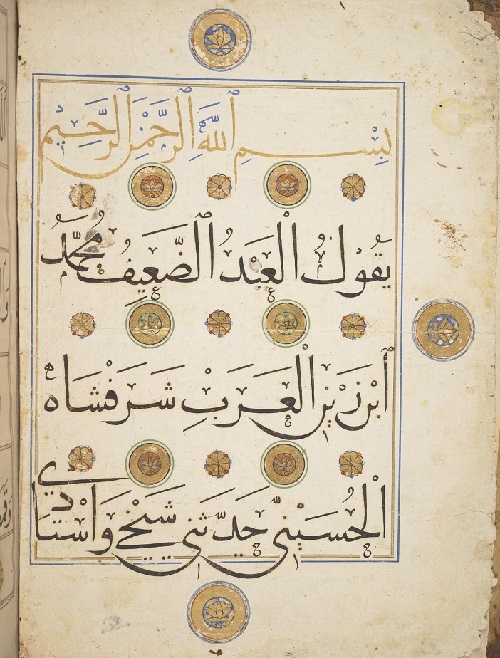 بِسْمِ اللَّهِ الرَّحْمَنِ الرَّحِيمِ
يَقُولُ الْعَبْدُ الضَّعِيفُ مُحَمَّدُ
ابْنُ زَرِّينِ الْعَرَبِ شَرَفْشَاه
الْحُسَيْنِيُّ حَدَّثَنِي شَيْخِي وَاسْتَادِي